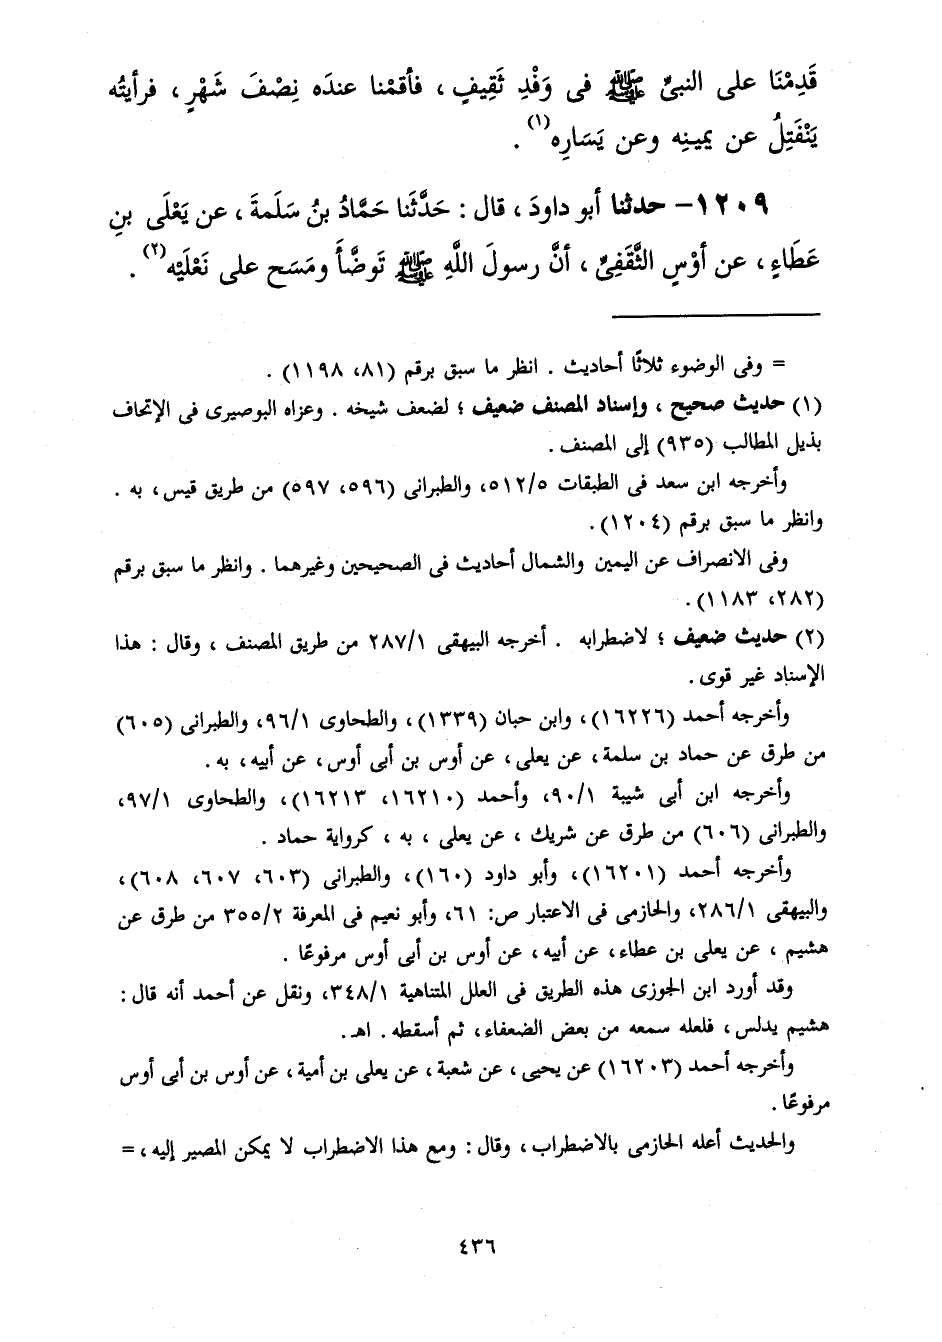 قَدِمْنَا على النبيِّ ﷺ فى وَفْدِ ثَقِيفٍ ، فأقمْنا عندَه نِصْفَ شَهْرٍ ، فرأيتُه
يَنْفَتِلُ عن يمينِه وعن يَسَارِه(١) .
١٢٠٩- حدثنا أبو داودَ ، قال : حَدَّثَنا حَمَّادُ بنُ سَلَمةَ ، عن يَعْلَى بنِ
عَطَاءٍ ، عن أوْسٍ الثَّقَفِىِّ ، أنَّ رسولَ اللَّهِ ﷺ تَوضَّأَ ومَسَح على نَعْلَيْه(٢) .
= وفى الوضوء ثلاثًا أحاديث . انظر ما سبق برقم (٨١، ١١٩٨) .
(١) حديث صحيح ، وإسناد المصنف ضعيف ؛ لضعف شيخه . وعزاه البوصيرى فى الإتحاف
بذيل المطالب (٩٣٥) إلى المصنف .
وأخرجه ابن سعد فى الطبقات ٥١٢/٥، والطبرانى (٥٩٦، ٥٩٧) من طريق قيس، به .
وانظر ما سبق برقم (١٢٠٤) .
وفى الانصراف عن اليمين والشمال أحاديث فى الصحيحين وغيرهما . وانظر ما سبق برقم
(٢٨٢، ١١٨٣) .
(٢) حديث ضعيف ؛ لاضطرابه . أخرجه البيهقى ٢٨٧/١ من طريق المصنف ، وقال : هذا
الإسناد غير قوى .
وأخرجه أحمد (١٦٢٢٦) ، وابن حبان (١٣٣٩) ، والطحاوى ٩٦/١، والطبرانى (٦٠٥)
من طرق عن حماد بن سلمة، عن يعلى، عن أوس بن أبى أوس، عن أبيه، به .
وأخرجه ابن أبى شيبة ٩٠/١، وأحمد (١٦٢١٠، ١٦٢١٣)، والطحاوى ٩٧/١،
والطبرانى (٦٠٦) من طرق عن شريك ، عن يعلى ، به ، كرواية حماد .
وأخرجه أحمد (١٦٢٠١)، وأبو داود (١٦٠)، والطبرانى (٦٠٣، ٦٠٧، ٦٠٨)،
والبيهقى ٢٨٦/١، والحازمى فى الاعتبار ص: ٦١، وأبو نعيم فى المعرفة ٣٥٥/٢ من طرق عن
هشيم ، عن يعلى بن عطاء، عن أبيه، عن أوس بن أبى أوس مرفوعًا .
وقد أورد ابن الجوزى هذه الطريق فى العلل المتناهية ٣٤٨/١، ونقل عن أحمد أنه قال :
هشيم يدلس، فلعله سمعه من بعض الضعفاء، ثم أسقطه . اهـ .
وأخرجه أحمد (١٦٢٠٣) عن يحيى، عن شعبة، عن يعلى بن أمية، عن أوس بن أبى أوس
مرفوعًا .
والحديث أعله الحازمى بالاضطراب، وقال : ومع هذا الاضطراب لا يمكن المصير إليه، =
٤٣٦